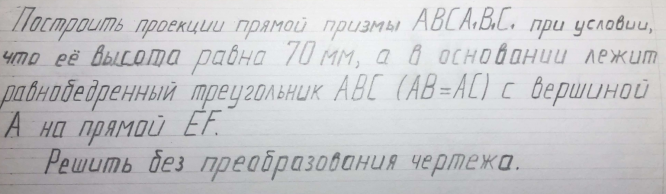 Построить проекции прямой призмы ABCA₁B₁C₁ при условии,
что её высота равна 70 мм, а в основании лежит
равнобедренный треугольник ABC (AB=AC) с вершиной
A на прямой EF.
Решить без преобразования чертежа.